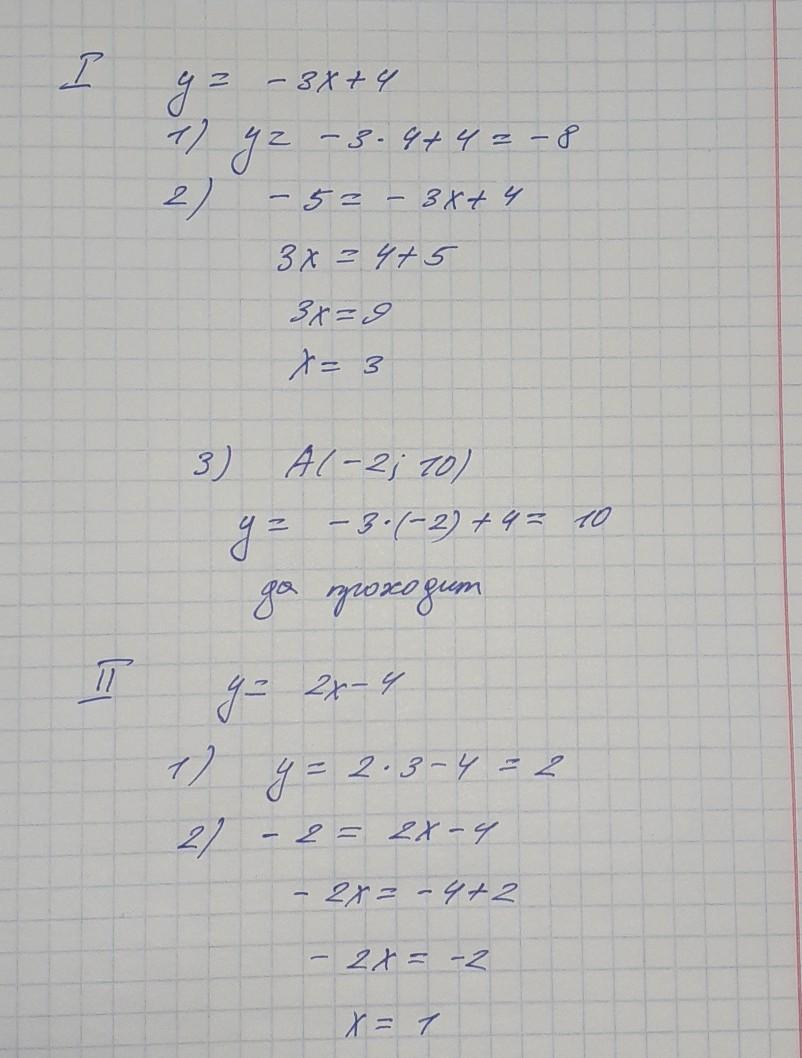 I y = -3x+4
1) y = -3·4+4 = -8
2) -5 = -3x+4
3x = 4+5
3x=9
x = 3
3) A(-2; 10)
y = -3·(-2)+4 = 10
да проходит
II y = 2x-4
1) y = 2·3-4 = 2
2) -2 = 2x-4
-2x = -4+2
-2x = -2
x = 1